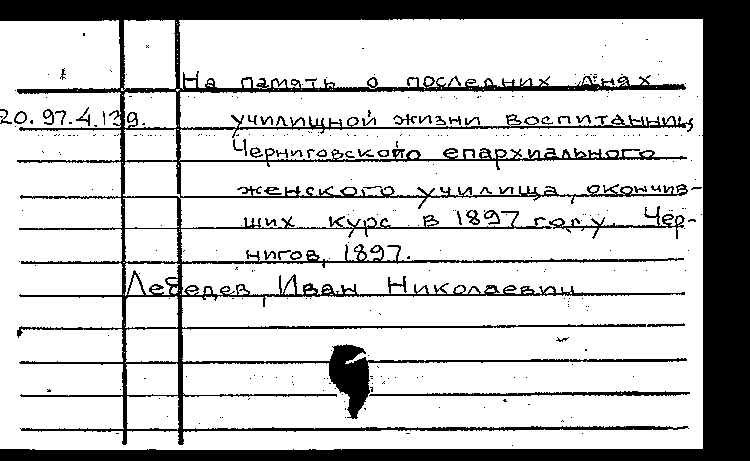 На память о последних днях
20.97.4.139. училищной жизни воспитанниц
Черниговского епархиального
женского училища, окончив-
ших курс в 1897 году. Чер-
нигов, 1897.
Лебедев, Иван Николаевич